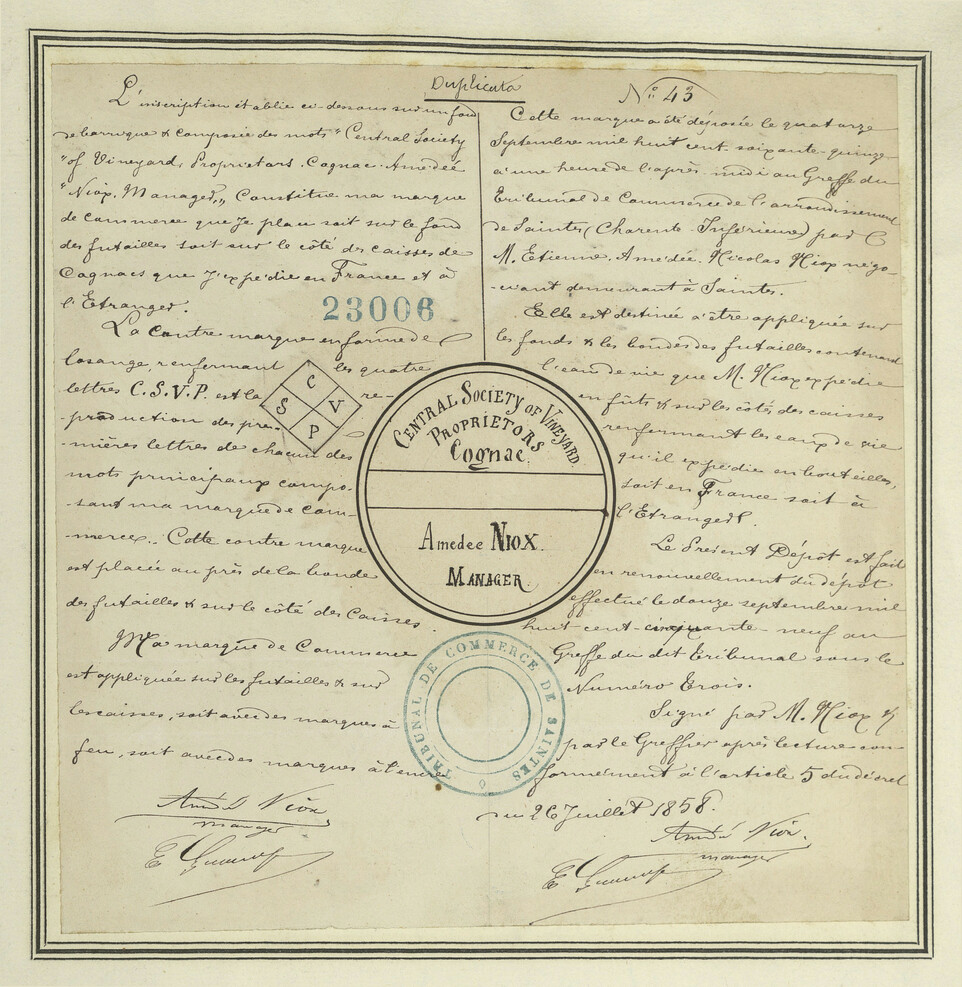 Duplicata
L'inscription établie ci-dessous sur un fond
de barrique & composée des mots "Central Society
"of Vineyard, Proprietors. Cognac. Amedéé
"Niox. Manager,, Constitue ma marque
de commerce que je place soit sur le fond
des futailles soit sur le côté des caisses de
Cognacs que j'expédie en France et à
l'Etranger.
23006
La contre marque en forme de
losange, renfermant les quatre
lettres C.S.V.P. est la re-
production des pre-
mières lettres de chacun des
mots principaux compo-
sant ma marque de com-
merce. Cette contre marque
est placée au près de la bonde
des futailles & sur le côté des Caisses.
Ma marque de Commerce
est appliquée sur les futailles & sur
les caisses, soit avec des marques à
feu, soit avec des marques à l'encre
Amédée Niox
manager
C
S V
P
CENTRAL SOCIETY OF VINEYARD.
PROPRIETORS
Cognac.
Amedee NIOX.
MANAGER.
TRIBUNAL DE COMMERCE DE SAINTES
N° 43
Cette marque a été déposée le quatorze
Septembre mil huit cent soixante-quinze
à une heure de l'après-midi au Greffe du
Tribunal de Commerce de l'arrondissement
de Saintes (Charente-Inférieure) par
M. Etienne. Amédée. Nicolas Niox négo-
-ciant demeurant à Saintes.
Elle est destinée à être appliquée sur
les fonds & les bondes des futailles contenant
l'eau de vie que M. Niox expédie
en fûts & sur les côtés des caisses
renfermant les eaux de vie
qu'il expédie en bouteilles,
soit en France soit à
l'Etranger.
Le Présent Dépôt est fait
en renouvellement du dépôt
effectué le douze septembre mil
huit cent-cinquante-neuf au
Greffe du dit tribunal sous le
Numéro trois.
Signé par M. Niox &
par le Greffier après lecture con-
formément à l'article 5 du décret
du 26 Juillet 1858.
Amédée Niox.
manager